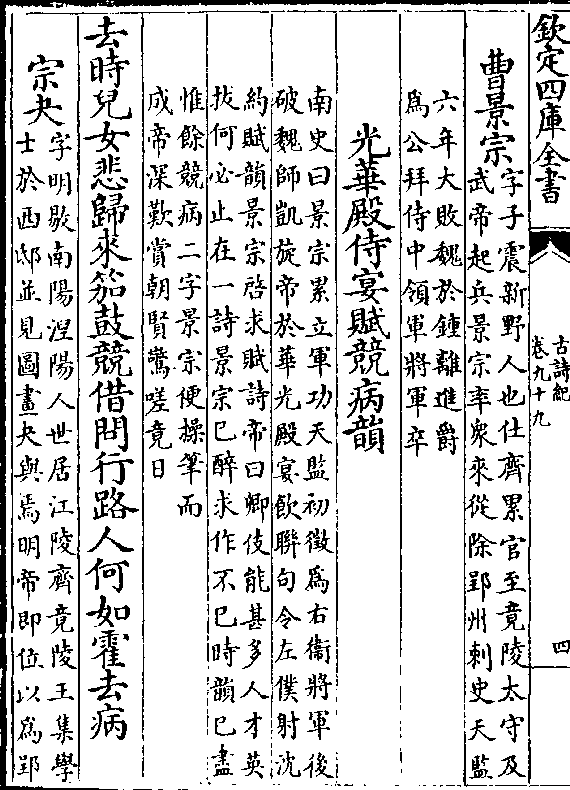 欽定四庫全書
古詩紀
卷九十九
四
曹景宗
字子震新野人也仕齊累官至竟陵太守及
武帝起兵景宗率衆來從除郢州刺史天監
六年大敗魏於鍾離進爵
爲公拜侍中領軍將軍卒
光華殿侍宴賦競病韻
南史曰景宗累立軍功天監初徵爲右衞將軍後
破魏師凱旋帝於華光殿宴飲聯句令左僕射沈
約賦韻景宗啓求賦詩帝曰卿伎能甚多人才英
拔何必止在一詩景宗已醉求作不已時韻已盡
惟餘競病二字景宗便操筆而
成帝深歎賞朝賢驚嗟竟日
去時兒女悲歸來笳鼓競借問行路人何如霍去病
宗夬
字明敭南陽涅陽人世居江陵齊竟陵王集學
士於西邸並見圖畫夬與焉明帝即位以爲郢